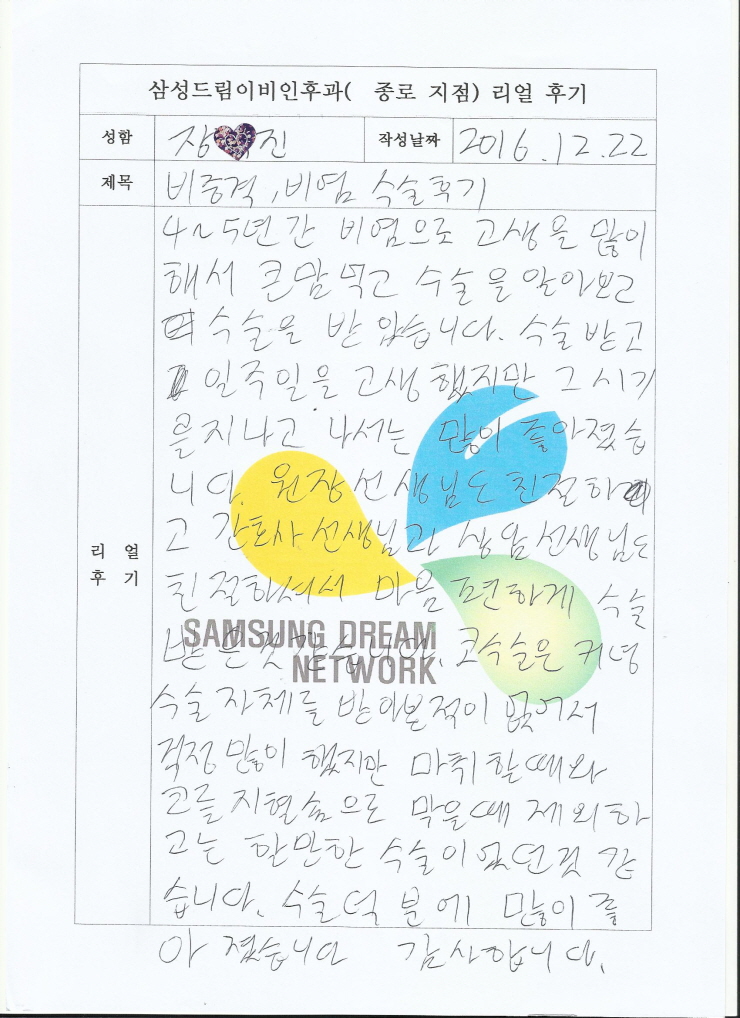 삼성드림이비인후과( 종로 지점) 리얼 후기
성함 장 진 작성날짜 2016.12.22
제목 비중격, 비염 수술후기
리 얼
후 기
4~5년간 비염으로 고생을 많이
해서 큰맘먹고 수술을 알아보고
수술을 받았습니다. 수술받고
일주일을 고생했지만 그 시기
를지나고 나서는 많이 좋아졌습
니다. 원장선생님도 친절하
고 간호사선생님과 상담선생님도
친절하셔서 마음 편하게 수술
받은것같습니다. 코수술은 커녕
수술자체를 받아본적이 없어서
걱정많이 했지만 마취할때와
코를지혈솜으로 막을때 제외하
고는 할만한 수술이었던것 같
습니다. 수술덕분에 많이 좋
아졌습니다 감사합니다.
SAMSUNG DREAM
NETWORK